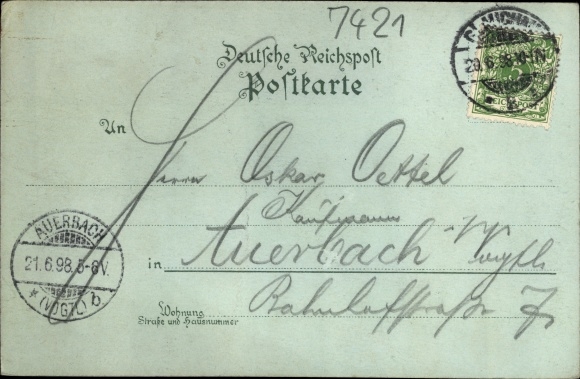 7421
GLAUCHAU
20.6.98. 10-11V.
REICHSPOST
Deutsche Reichspost
Postkarte
An
Herrn Oskar Oettel
Kaufmann
in Auerbach Vogtl.
Bahnhofstraße 7.
Wohnung
Straße und Hausnummer
AUERBACH
21.6.98.5-6V.
* (VOGTL) b